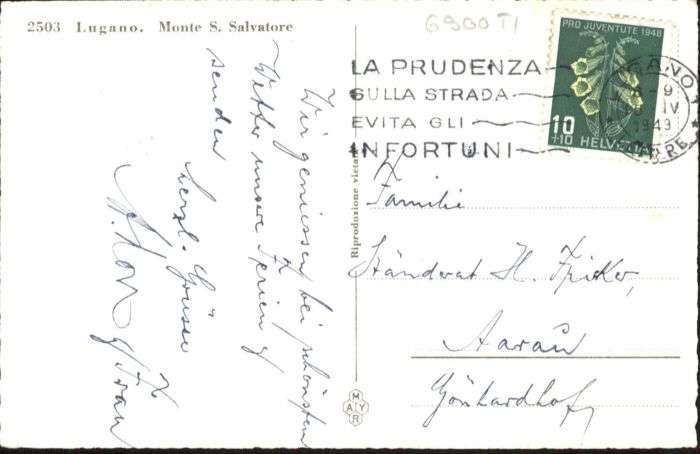 2503 Lugano. Monte S. Salvatore
6900 TI
PRO JUVENTUTE 1948
10
+10 HELVETIA
LA PRUDENZA
SULLA STRADA
EVITA GLI
INFORTUNI
LUGANO
-9
IV
1949
Riproduzione vietata
Wir geniessen bei schönstem
Wetter unsere Ferien &
senden
herzl. Grüsse
& Frau
Familie
Ständerat H. Fricker,
Aarau
Gönhardhof
MAYR